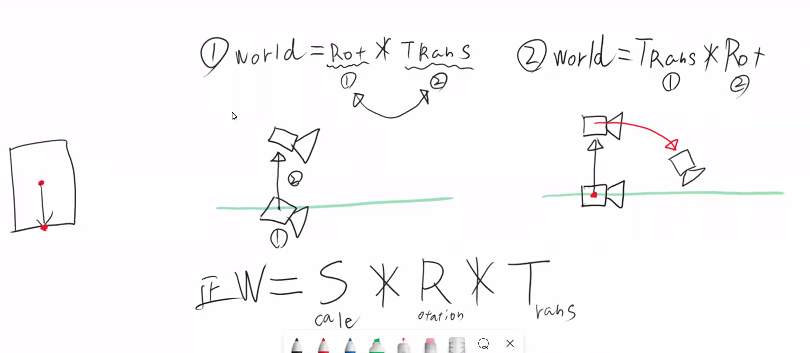 ① world = Rot * Trans
① ②
② world = Trans * Rot
① ②
②
①
正 W = S * R * T
cale otation rans